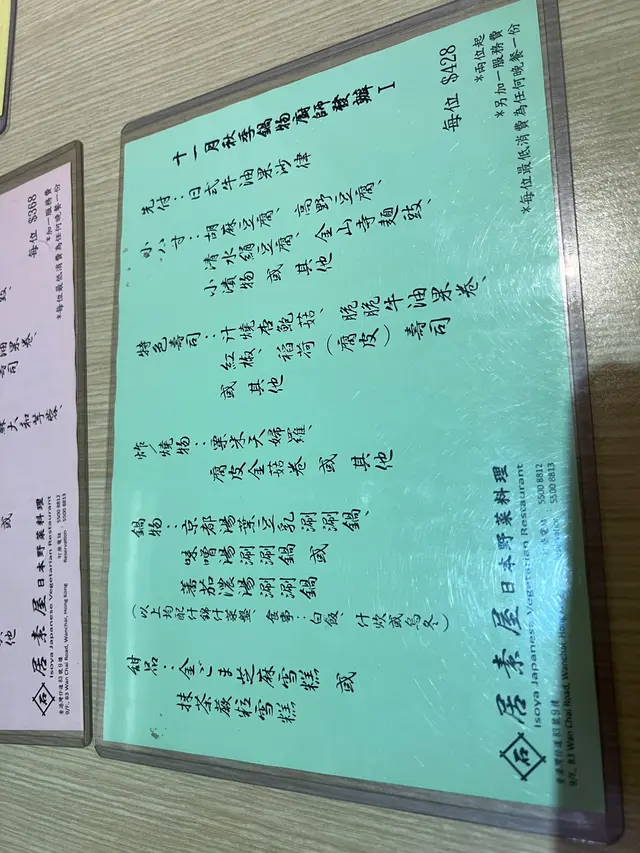 十一月秋季鍋物廚師發辦 I
先付：日式牛油果沙律
小八寸：胡麻豆腐、高野豆腐、
清水絹豆腐、金山寺麵豉、
小漬物或其他
特色壽司：汁燒杏鮑菇、脆脆牛油果卷、
紅椒、稻荷(腐皮)壽司
或其他
炸/燒物：粟米天婦羅、
腐皮金菇卷或其他
鍋物：京都湯葉豆乳涮涮鍋、
味噌湯涮涮鍋或
蕃茄濃湯涮涮鍋
(以上均配什錦什菜盤、食事：白飯、什炊或烏冬)
甜品：金ごま芝麻雪糕或
抹茶蕨粒雪糕
每位 $428
*兩位起
*另加一服務費
*每位最低消費為任何晚餐一份
居素屋 日本野菜料理
Isoya Japanese Vegetarian Restaurant
香港灣仔道83號9樓
9/F, 83 Wan Chai Road, Wanchai, Hon
5500 8812
5500 8813
每位 $368
*加一服務費
*每位最低消費為任何晚餐一份
油果卷、
壽司
大和芋蓉、
或
他
居素屋 日本野菜料理
Isoya Japanese Vegetarian Restaurant
香港灣仔道83號9樓
9/F, 83 Wan Chai Road, Wanchai, Hong Kong
訂座電話 5500 8812
Reservation 5500 8813